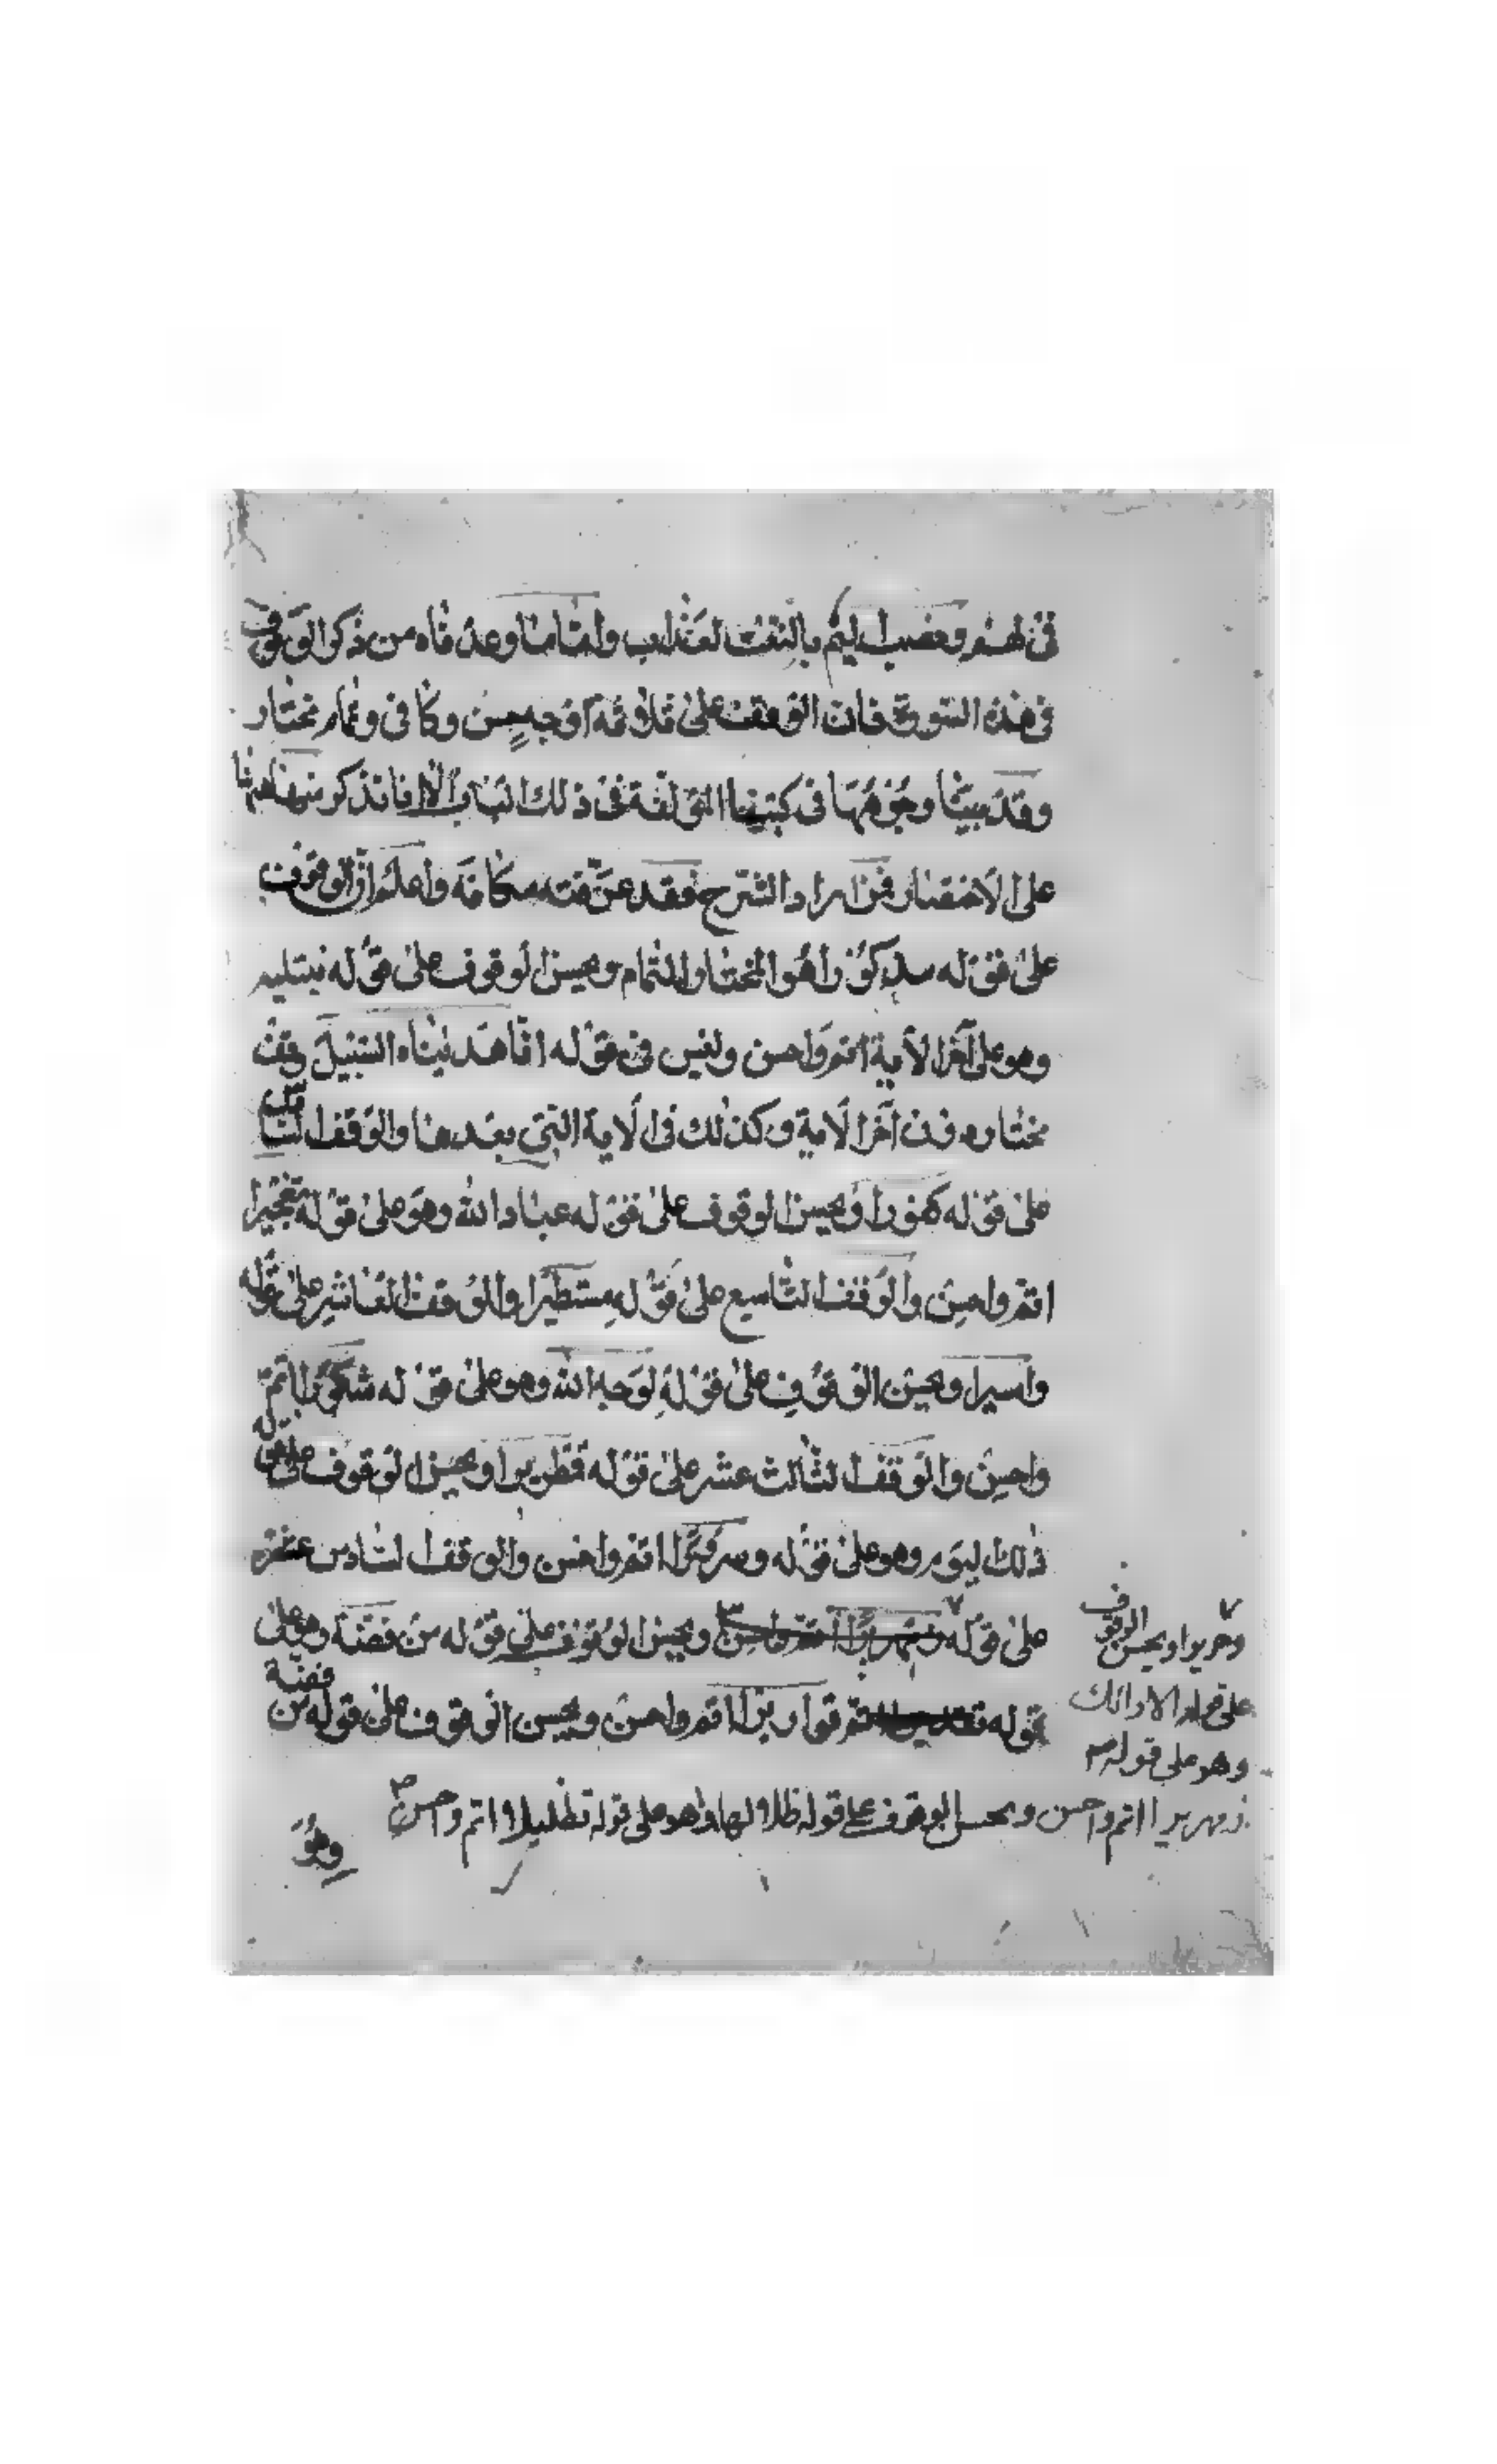 في لهم ونصب اليم بالنعت لعذاب واما ما وعدناه من ذكر الوقوف
في هذه السورة فان الوقف على ثلاثة اوجه حسن وكافى وتمام مختار
وقد بينا وجوهها في كتبنا المؤلفة في ذلك الباب الا انا نذكر منها هاهنا
على الاختصار فمن اراد الشرح فقد عرفته مكانه واعلم ان الوقوف
على قوله مذكورا هو المختار والتمام ويحسن الوقوف على قوله نبتليه
وهو على آخر الآية اتم واحسن وليس في قوله انا هديناه السبيل وقف
مختار دون آخر الآية وكذلك في الآية التي بعدها والوقف السابع
على قوله كافورا ويحسن الوقوف على قوله عباد الله وهو على قوله تفجيرا
اتم واحسن والوقف التاسع على قوله مستطيرا والوقف العاشر على قوله
واسيرا ويحسن الوقوف على قوله لوجه الله وهو على قوله شكورا اتم
واحسن والوقف الثالث عشر على قوله قمطريرا ويحسن الوقوف على قوله
ذلك اليوم وهو على قوله وسرورا اتم واحسن والوقف السادس عشر
على قوله ويحسن الوقوف على قوله من فضة وهو على
قوله قواريرا اتم واحسن ويحسن الوقوف على قوله من فضة
وحريرا ويحسن الوقوف
على قوله الارائك
وهو على قوله
زمهريرا اتم واحسن ويحسن الوقوف على قوله ظلالها وهو على قوله تذليلا اتم واحسن
وهو